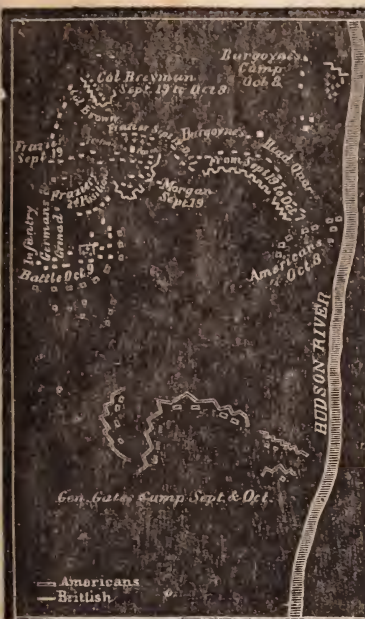 Burgoyne's
Camp
Oct 8.
Col Breyman
Sept. 19 to Oct 8
Col Brown
Frazier Sept 19
Burgoyne's Head Quar.
From Sept 19 to Oct 7
Frazier
Sept 19
Frazier's
2d Position
Morgan
Sept 19.
Infantry
Germans
Grenad
Battle Oct 9
Americans
Oct 8
HUDSON RIVER
Gen. Gates Camp Sept. & Oct.
Americans
British